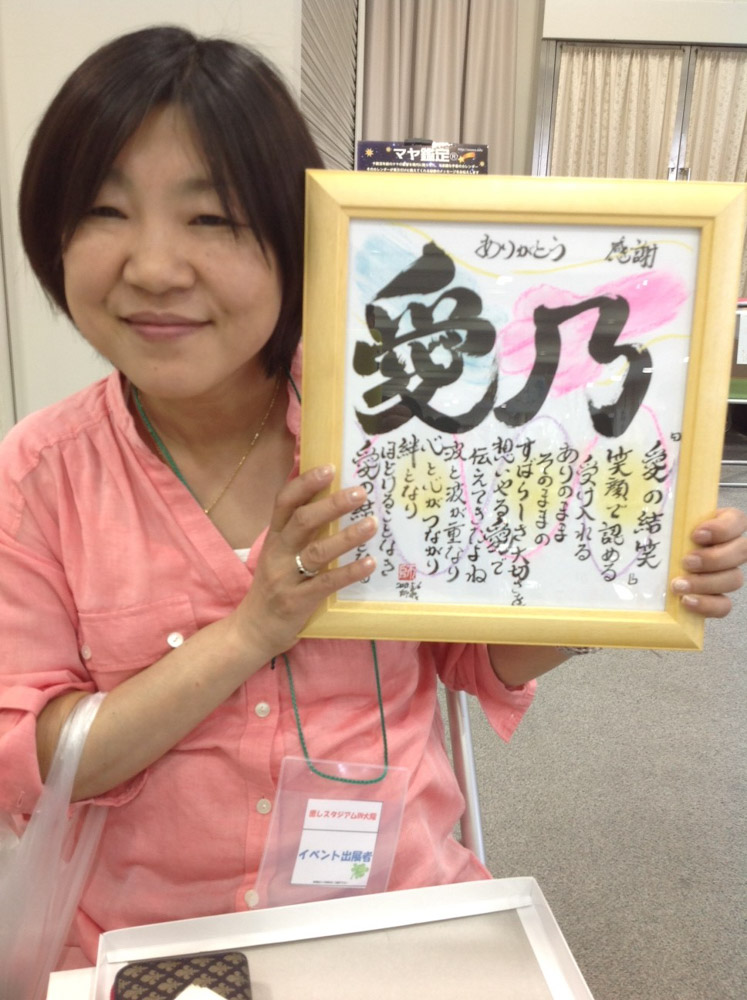 マヤ鑑定®
ありがとう 感謝
愛乃
『愛の結笑』
笑顔で認める
受け入れる
ありのまま
そのままの
すばらしさ大切さを
想いやる愛で
伝えてきたよね
波と波が重なり
心と心がつながり
絆となり
ほどけることなき
愛の結
癒しスタジアムin大阪
イベント出展者